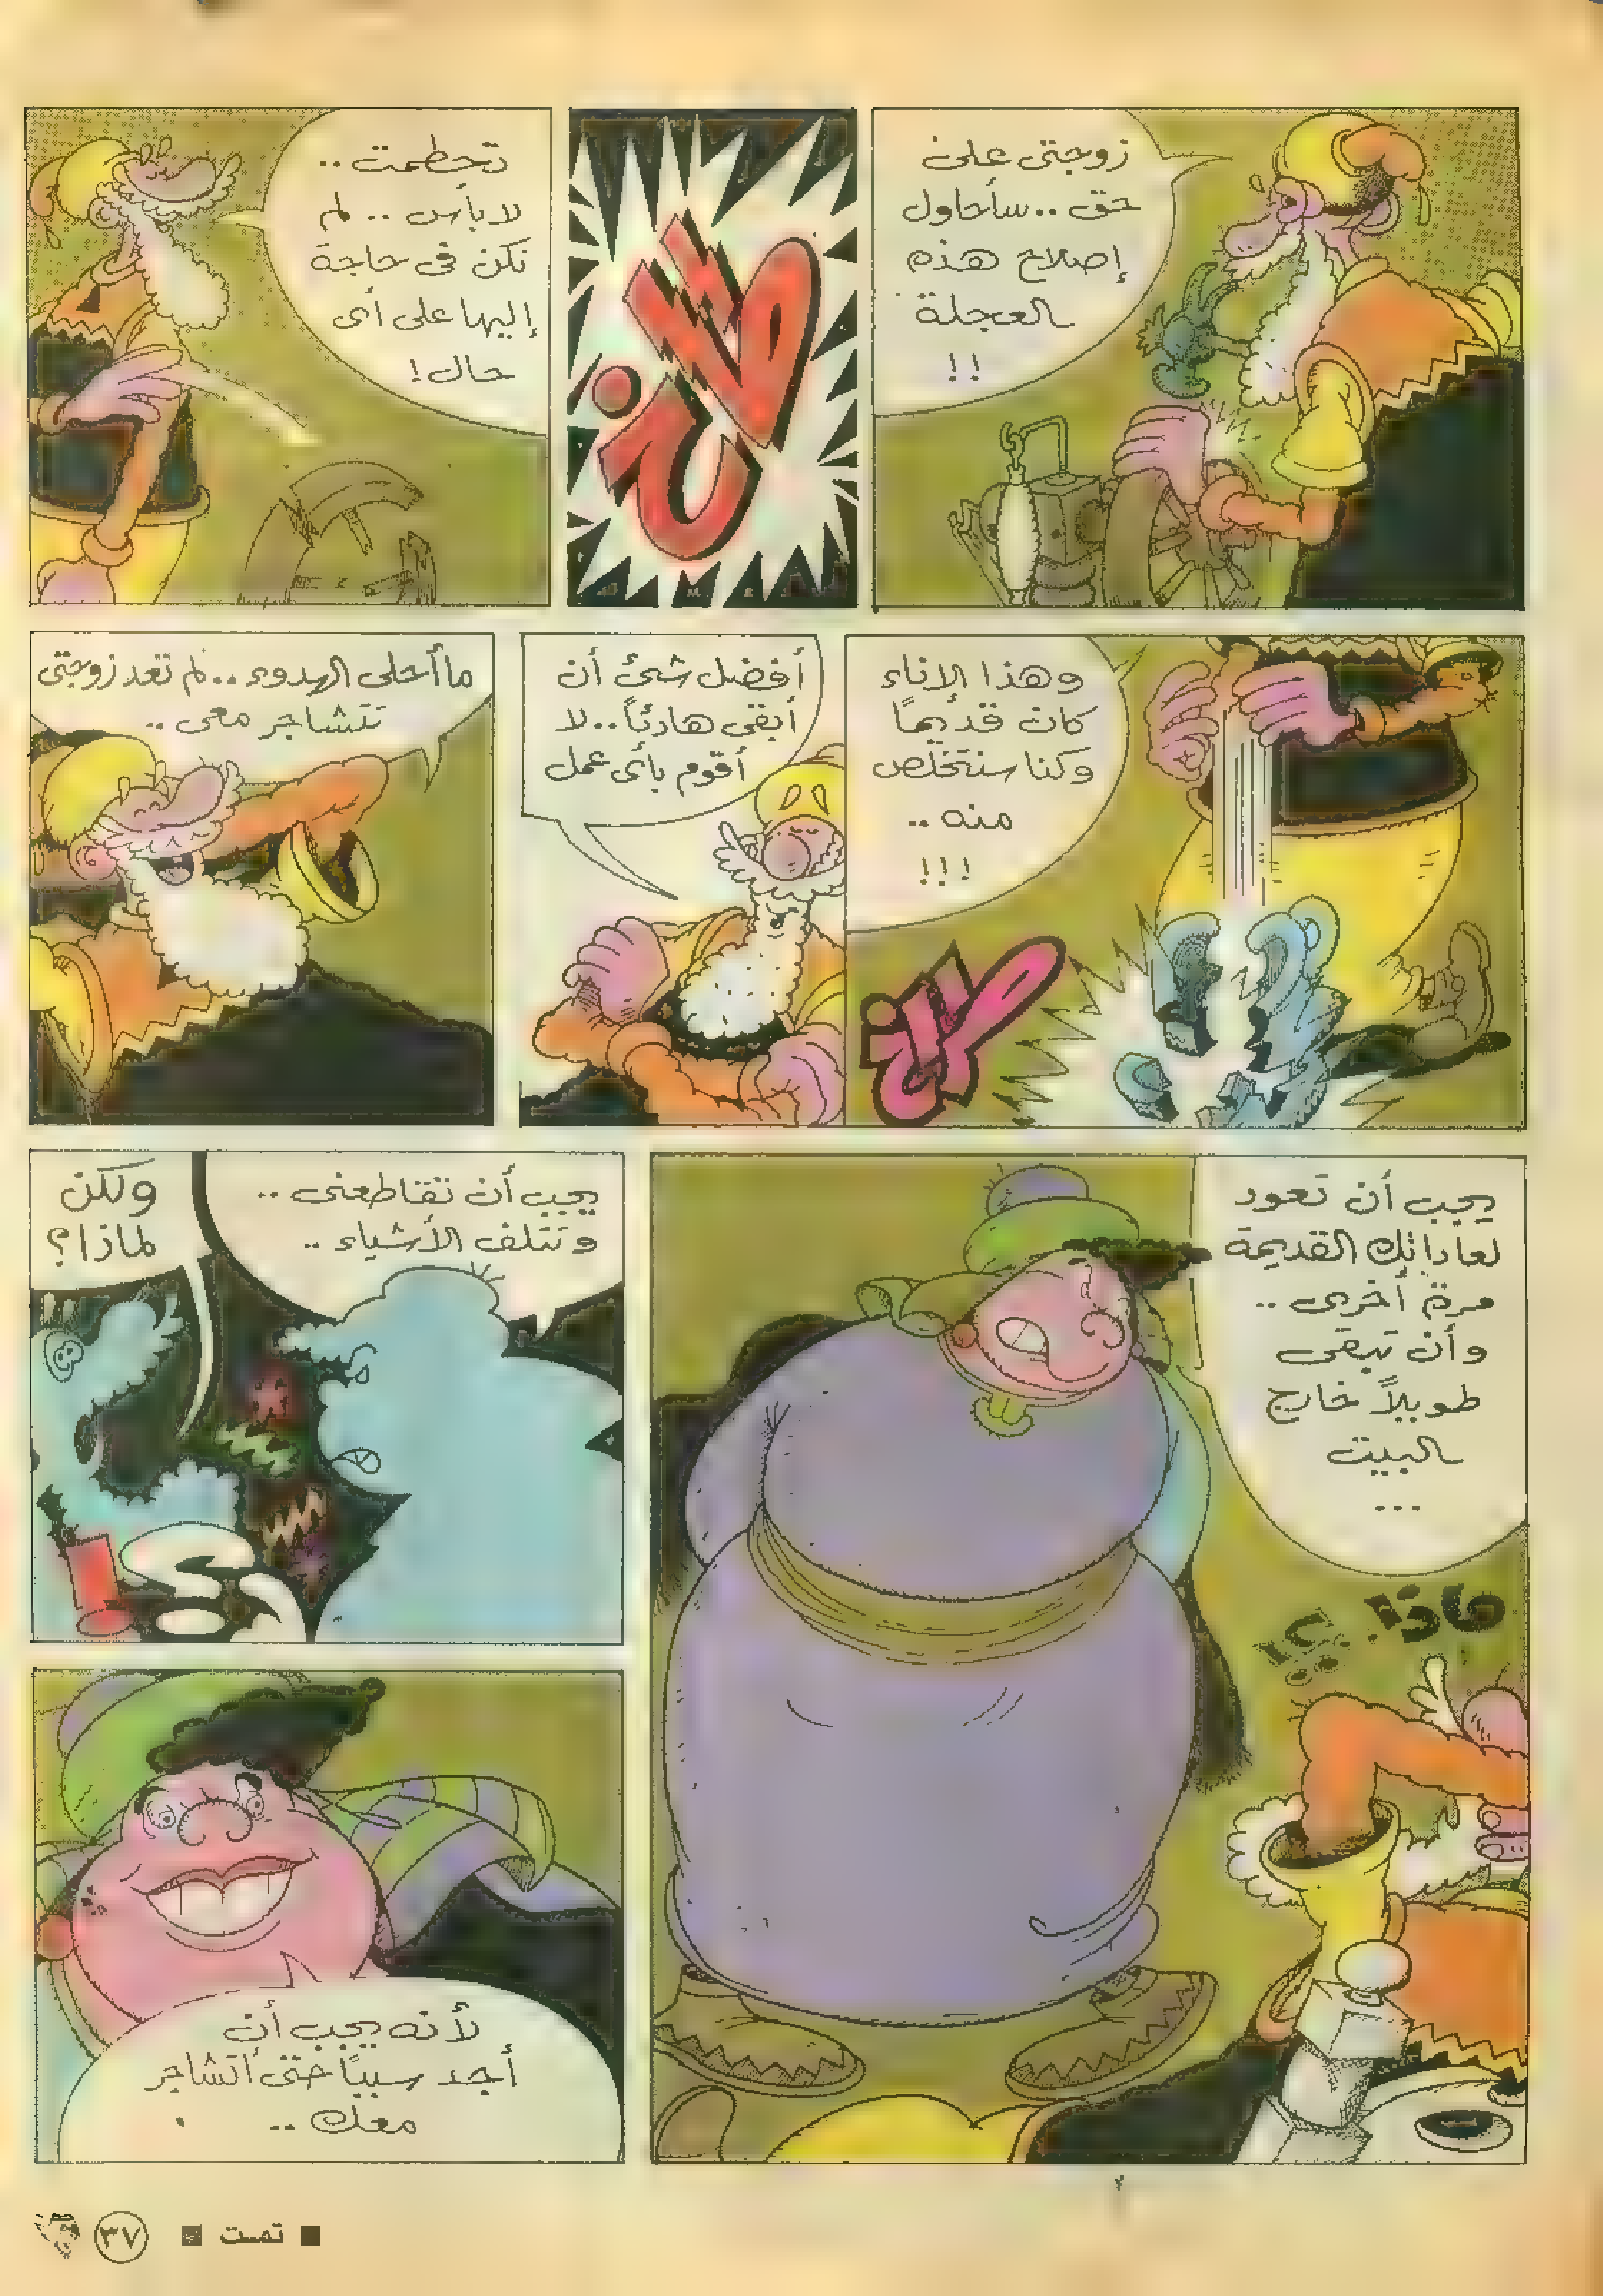 زوجتى على
حق .. سأحاول
إصلاح هذه
العجلة
!!
طاخ
تحطمت ..
لا بأس .. لم
نكن فى حاجة
إليها على أى
حال !
وهذا الإناء
كان قديمًا
وكنا سنتخلص
منه ..
!!!
أفضل شئ أن
أبقى هادئاً .. لا
أقوم بأى عمل
ما أحلى الهدوء .. لم تعد زوجتى
تتشاجر معى ..
يجب أن تعود
لعاداتك القديمة
مرة أخرى ..
وأن تبقى
طويلاً خارج
البيت
...
ماذا..؟!
يجب أن تقاطعنى ..
وتتلف الأشياء ..
ولكن
لماذا؟
لأنه يجب أن
أجد سببًا حتى أتشاجر
معك ..
٢
■ تمت ■
٣٧